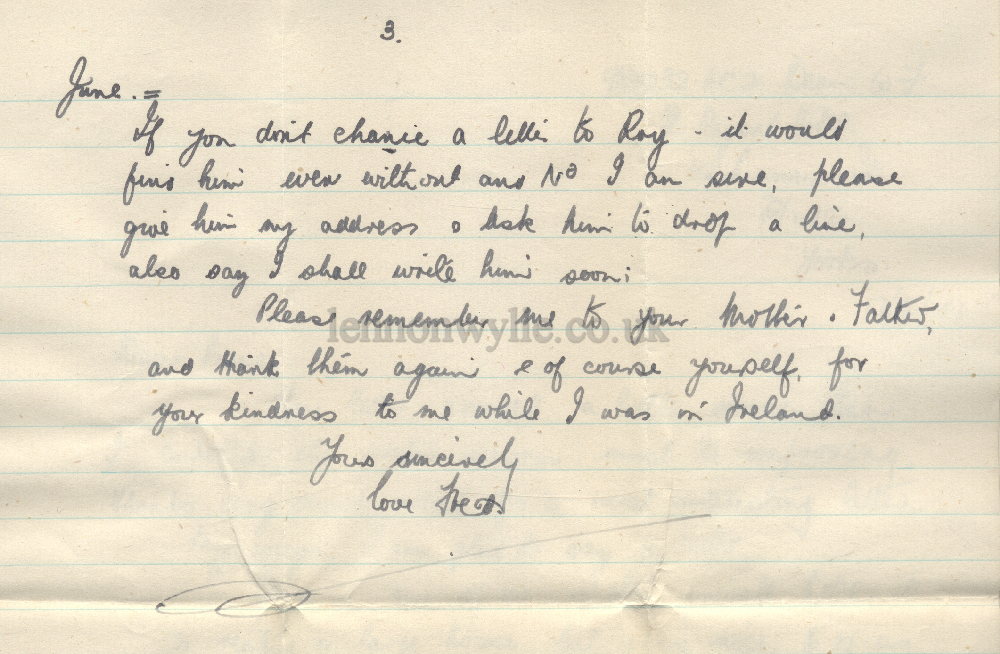 3.
June. =
If you don't chance a letter to Roy - it would
find him even without and No I am sure, please
give him my address & ask him to drop a line,
also say I shall write him soon;
Please remember me to your Mother & Father,
lennonwylie.co.uk
and thank them again & of course yourself, for
your kindness to me while I was in Ireland.
Yours sincerely
love